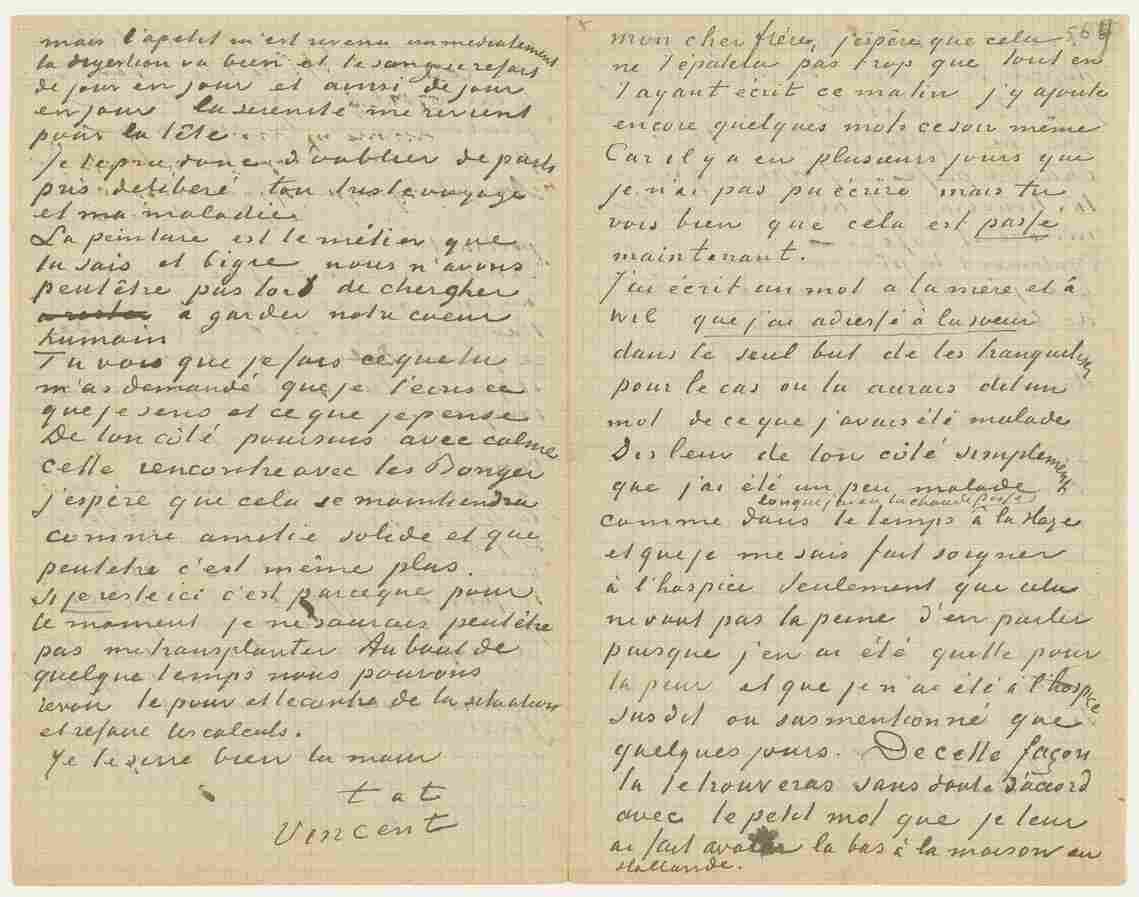 mais l'apetit m'est revenu immediatement
la digestion va bien et le sang se refait
de jour en jour et ainsi de jour
en jour la serenité me revient
pour la tête.
Je te prie donc d'oublier de parti
pris deliberé ton triste voyage
et ma maladie
La peinture est le métier que
tu sais et bigre nous n'avons
peutêtre pas tort de chergher
à garder notre coeur
humain
Tu vois que je fais ce que tu
m'as demandé que je t'écris ce
que je sens et ce que je pense
De ton côté poursuis avec calme
cette rencontre avec les Bonger
j'espère que cela se maintiendra
comme amitié solide et que
peutetre c'est même plus.
Si je reste ici c'est parceque pour
le moment je ne saurais peutêtre
pas me transplanter Au bout de
quelque temps nous pouvons
revoir le pour et le contre de la situation
et refaire les calculs.
Je te serre bien la main
t. à t.
Vincent
mon cher frère, j'espère que cela
ne t'épatera pas trop que tout en
t'ayant écrit ce matin j'y ajoute
encore quelques mots ce soir même
Car il y a eu plusieurs jours que
je n'ai pas pu écrire mais tu
vois bien que cela est passé
maintenant.
J'ai écrit un mot a la mère et à
Wil que j'ai adressé à la soeur
dans le seul but de les tranquiliser
pour le cas ou tu aurais dit un
mot de ce que j'avais été malade
Dis leur de ton côté simplement
que j'ai été un peu malade
comme dans le temps à la Haye
et que je me suis fait soigner
à l'hospice Seulement que cela
ne vaut pas la peine d'en parler
puisque j'en ai été quitte pour
la peur et que je n'ai été à l'hospice
susdit ou susmentionné que
quelques jours. De cette façon
tu te trouveras sans doute d'accord
avec le petit mot que je leur
ai fait avaler la bas à la maison en
Hollande.